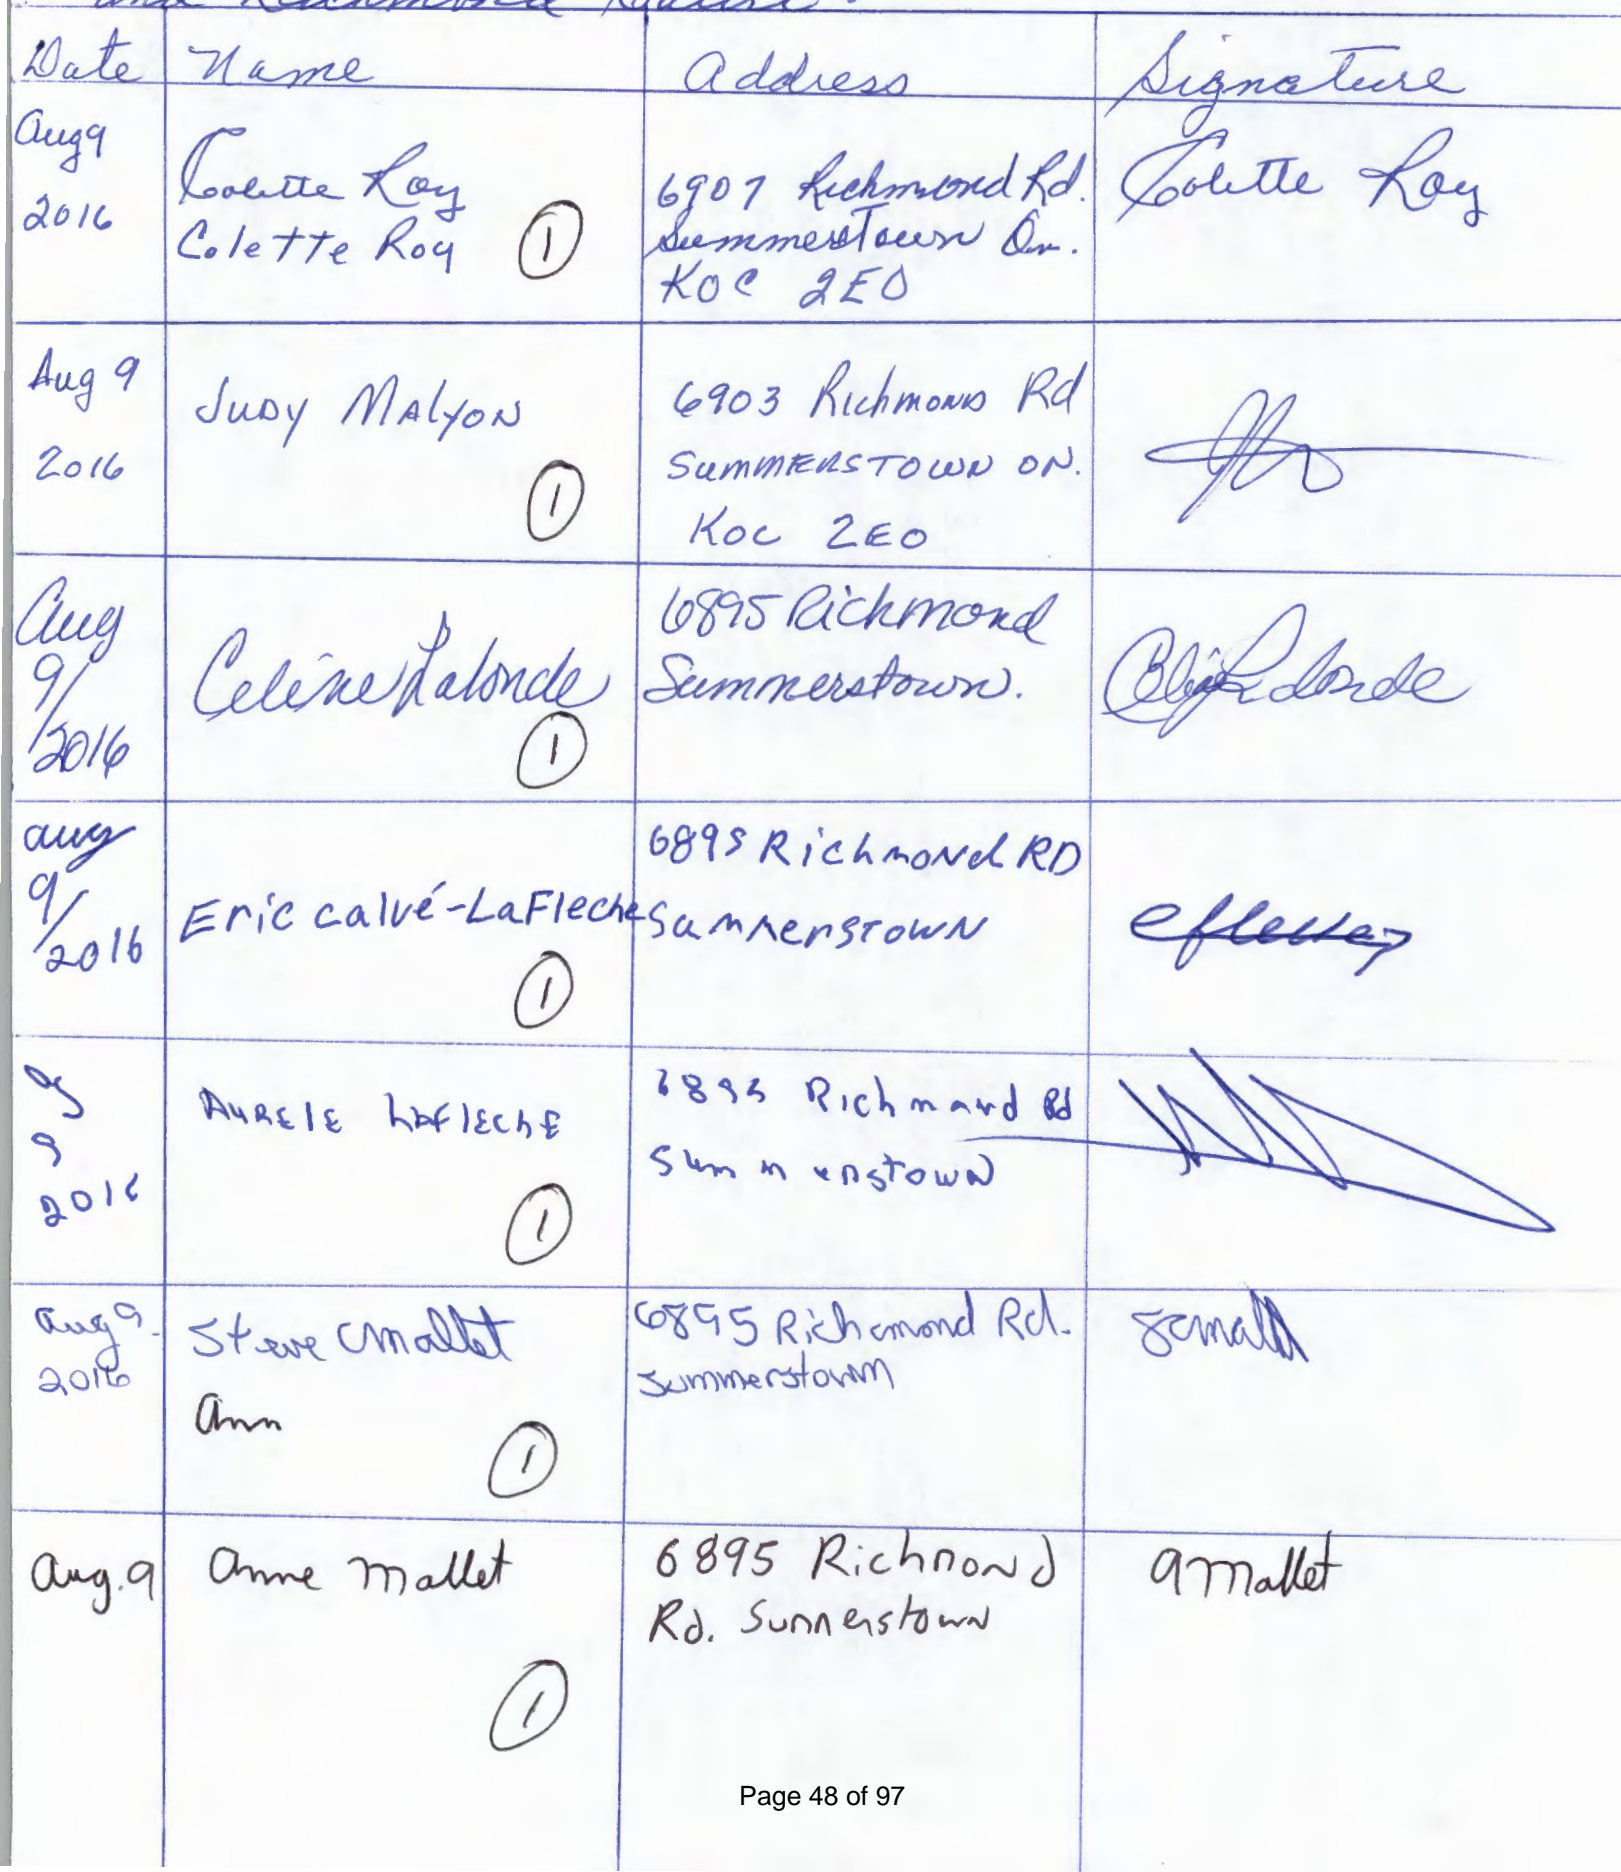 and Richmond
Date Name Address Signature
Aug 9
2016
Colette Roy
Colette Roy
1
6907 Richmond Rd.
Summerstown On.
K0C 2E0
Colette Roy
Aug 9
2016
Judy Malyon
1
6903 Richmond Rd
Summerstown ON.
K0C 2E0
Aug
9/
2016
Celine Lalonde
1
6895 Richmond
Summerstown.
Lalonde
Aug
9/
2016
Eric Calvé-LaFleche
1
6895 Richmond RD
Summerstown
9
2016
Aurele Lafleche
1
6895 Richmond Rd
Summerstown
Aug 9.
2016
Steve Mallet
Ann
1
6895 Richmond Rd.
Summerstown
Aug. 9
Anne Mallet
1
6895 Richmond
Rd. Summerstown
A Mallet
Page 48 of 97